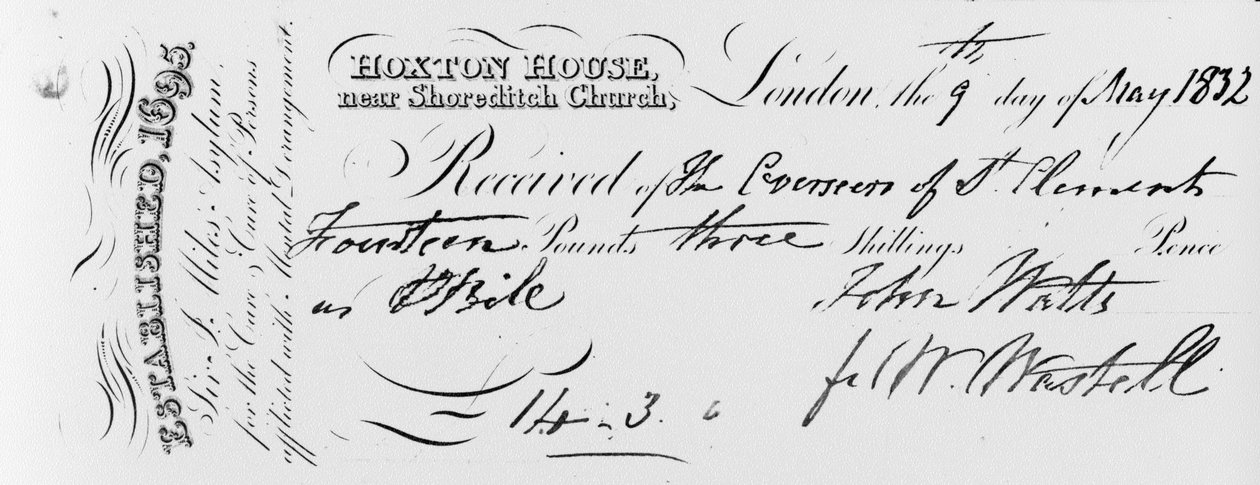 ESTABLISHED, 1695.
Sir J. Miles's Asylum,
for the Care & Cure of Persons
afflicted with Mental Derangement.
HOXTON HOUSE,
near Shoreditch Church,
London, the 9th day of May 1832
Received of The Overseers of St Clements
Fourteen Pounds three Shillings Pence
as Bile
John Watts
W. Wastell
£ 14 - 3 . 0